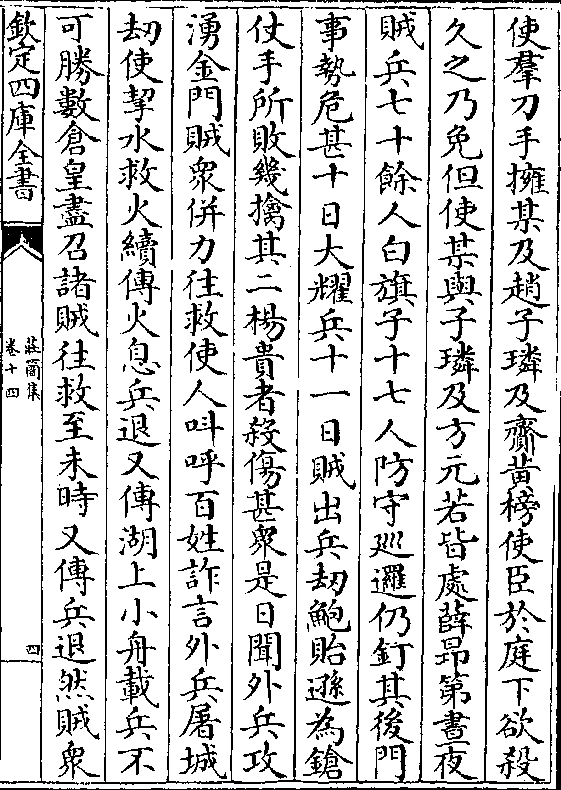 使羣刀手擁某及趙子璘及齎黄榜使臣於庭下欲殺
久之乃免但使某與子璘及方元若皆處薛昂第晝夜
賊兵七十餘人白旗子十七人防守廵邏仍釘其後門
事勢危甚十日大耀兵十一日賊出兵刼鮑貽遜為鎗
仗手所敗幾擒其二楊貴者殺傷甚衆是日聞外兵攻
湧金門賊衆併力往救使人呌呼百姓詐言外兵屠城
刼使挈水救火續傳火息兵退又傳湖上小舟載兵不
可勝數倉皇盡召諸賊往救至未時又傳兵退然賊衆
欽定四庫全書
莊簡集
卷十四
四